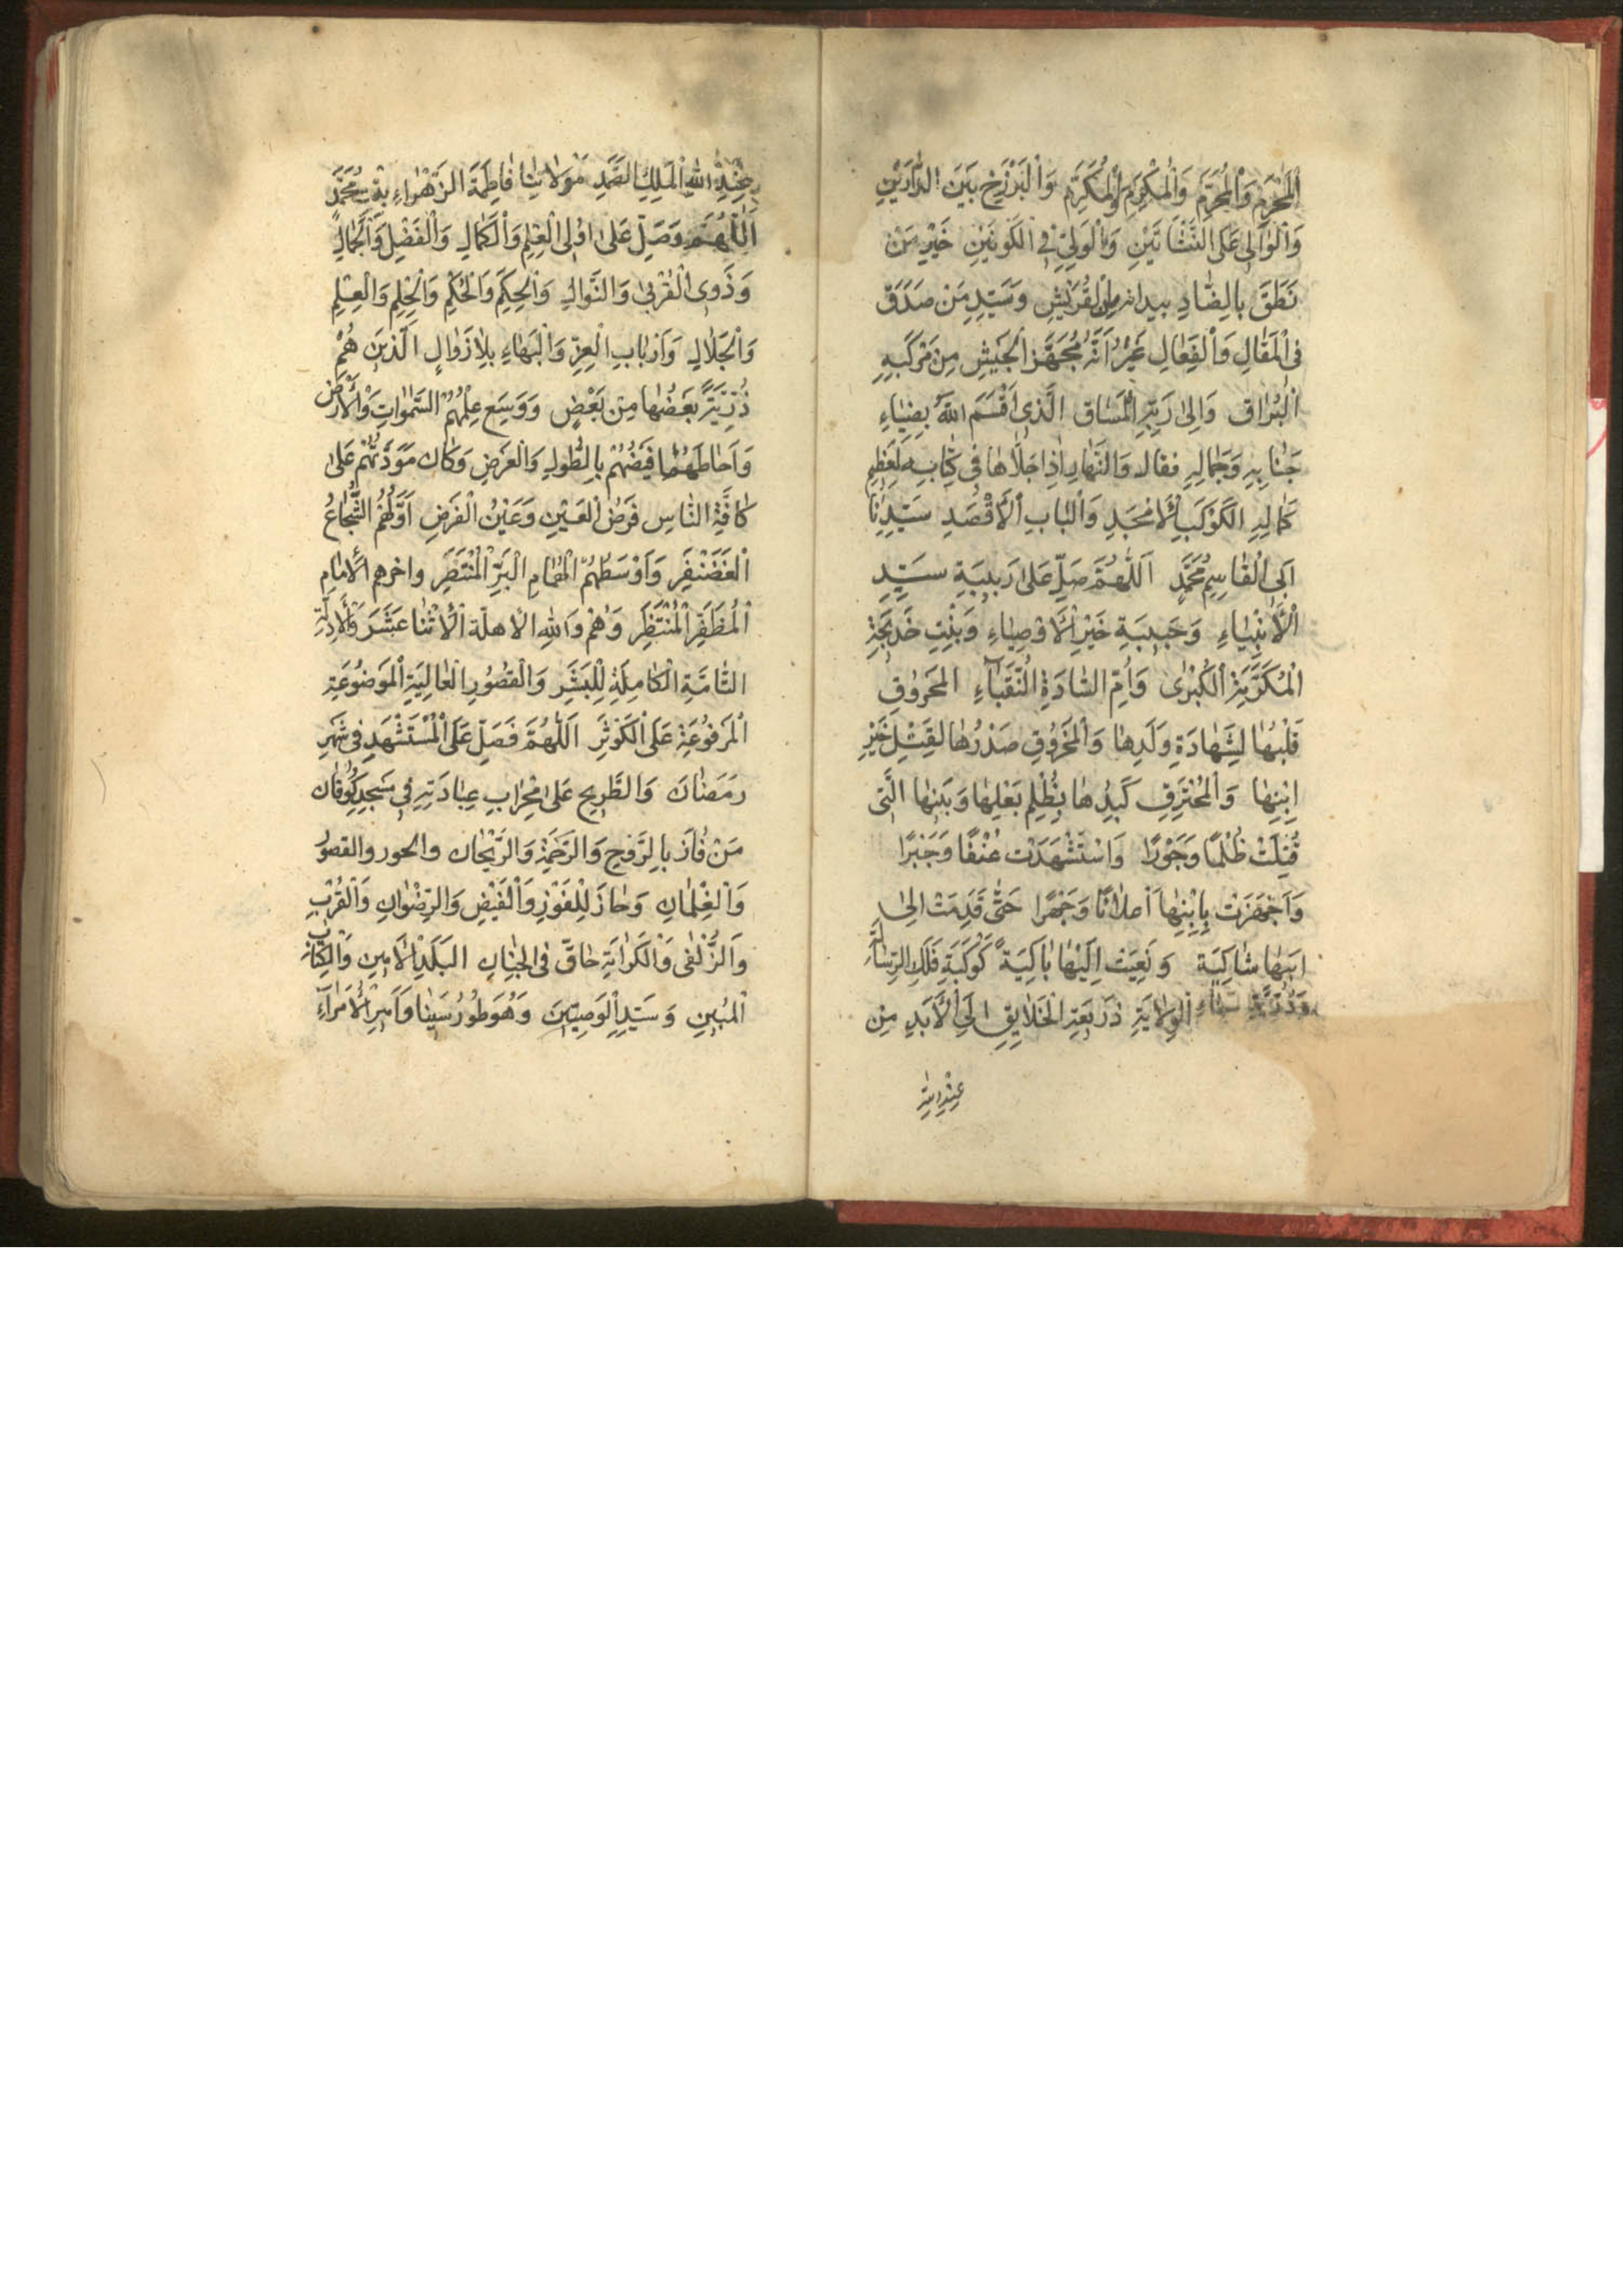 اَلْمُحْرِمِ وَالْمُحَرَّمِ وَالْمُكْرِمِ وَالْمُكَرَّمِ وَالْبَرْزَخِ بَيْنَ الدّٰارَيْنِ
وَالْوٰالِى عَلَى النَّشْاَتَيْنِ وَالْوَلِىِّ فِى الْكَوْنَيْنِ خَيْرِ مَنْ
نَطَقَ بِالضّٰادِ بيد انه من القُرَيْشِ وَسَيِّدِ مَنْ صَدَقَ
فِى الْمَقٰالِ وَالْفِعٰالِ غَيْرُ اَنَّهُ مُجَهَّزُ الْجَيْشِ مِنْ مَرْكَبِهِ
الْبُرٰاقِ وَاِلىٰ رَبِّهِ الْمَسٰاق الَّذِى اَقْسَمَ اللّٰهُ بِضِيٰاءِ
جَنٰابِهِ وَجَمٰالِهِ فقال وَالنَّهٰارِ اِذٰا جَلّٰاهٰا فِى كِتٰابِهِ لِعَظِيمِ
كَمٰالِهِ الكَوْكَبِ الْاَمْجَدِ وَالْبٰابِ الْاَقْصَدِ سَيِّدِنٰا
اَبِى الْقٰاسِمِ مُحَمَّدٍ اَللّٰهُمَّ صَلِّ عَلىٰ رَبِيبَةِ سَيِّدِ
الْاَنْبِيٰاءِ وَحَبِيبَةِ خَيْرِ الْاَوْصِيٰاءِ وَبِنْتِ خَدِيجَةِ
الْمُكَرَّمَةِ الْكُبْرىٰ وَاُمِّ السّٰادَةِ النُّقَبٰآءِ المَحْرُوقِ
قَلْبُهٰا لِشَهٰادَةِ وَلَدِهٰا وَالْمَخْرُوقِ صَدْرُهٰا لِقَتْلِ خَيْرِ
اِبْنِهٰا وَالْمُحْتَرِقِ كَبِدُهٰا بِظُلْمِ بَعْلِهٰا وَبَنِيهٰا الَّتِى
قُتِلَتْ ظُلْمًا وَجَوْرًا وَاسْتُشْهِدَتْ عُنْفًا وَجَبْرًا
وَاَجْهَزَتْ بِاِبْنِهٰا اعلٰانًا وَجَهْرًا حَتّٰى قَدِمَتْ اِلىٰ
اَبِيهٰا شٰاكِيَةً وَنُعِيَتْ اِلَيْهٰا بٰاكِيَةً كَوْكَبَةِ فَلَكِ الرِّسٰالَةِ
وَدُرِّيَّةِ سَمٰاءِ الْوِلٰايَةِ ذَرِيعَةِ الْخَلٰايِقِ اِلَى الْاَبَدِ مِنْ
عِنْدِ اللّٰهِ
عِنْدِ اللّٰهِ الْمَلِكِ الصَّمَدِ مَوْلٰاتِنٰا فٰاطِمَةَ الزَّهْرٰاءِ بِنْتِ مُحَمَّدٍ
اَللّٰهُمَّ وَصَلِّ عَلىٰ اُولِى الْعِلْمِ وَالْكَمٰالِ وَالْفَضْلِ وَالْجَمٰالِ
وَذَوِى الْقُرْبىٰ وَالنَّوالِ وَالْحِكَمِ وَالْحُكْمِ وَالْحِلْمِ وَالْعِلْمِ
وَالْجَلٰالِ وَاَرْبٰابِ الْعِزِّ وَالْبَهٰاءِ بِلٰا زَوٰالٍ الَّذِينَ هُمْ
ذُرِّيَّةً بَعْضُهٰا مِنْ بَعْضٍ وَوَسِعَ عِلْمُهُمْ السَّمٰوٰاتِ وَالْاَرْضَ
وَاَحٰاطَهُمٰا فَيْضُهُمْ بِالطُّولِ وَالْعَرْضِ وَكٰانَ مَوَدَّتُهُمْ عَلىٰ
كٰافَّةِ النّٰاسِ فَرْضُ الْعَيْنِ وَعَيْنُ الْفَرْضِ اَوَّلُهُمُ الشُّجٰاعُ
الْغَضَنْفَرِ وَاَوْسَطُهُمُ الْهُمٰامِ الْبَرِّ الْمُنْتَصَرِ واخرهم الْاِمٰامِ
الْمُظَفَّرِ الْمُنْتَظَرِ وَهُمْ وَاللّٰهِ الْاَهِلَّةِ الْاَثْنٰا عَشَرَ وَالْاَدِلَّةِ
التّٰامَّةِ الْكٰامِلَةِ لِلْبَشَرِ وَالْقُصُورِ الْعٰالِيَةِ الْمَوضُوعَةِ
الْمَرْفُوعَةِ عَلَى الْكَوْثَرِ اَللّٰهُمَّ فَصَلِّ عَلَى الْمُسْتَشْهَدِ فِى شَهْرِ
رَمَضٰانَ وَالطَّرِيحِ عَلىٰ مِحْرٰابِ عِبٰادَتِهِ فِى مَسْجِدِ كُوفٰان
مَنْ فٰازَ بِالرَّوْحِ وَالرَّحْمَةِ وَالرَّيْحٰانِ والحور والقصُورُ
وَالْغِلْمٰانِ وَحٰازَ لِلْفَوْزِ وَالْفَيْضِ وَالرِّضْوٰانِ وَالْقُرْبِ
وَالزُّلْفىٰ وَالْكَرٰامَةِ حٰاقَّ فِى الْجِنٰانِ الْبَلَدِ الْاَمِينِ وَالْكِتٰابِ
الْمُبِينِ وَسَيِّدِ الْوَصِيِّينَ وَهُوَ طُورُ سَيْنٰا وَاَمِيرُ الْاُمَرٰآءِ